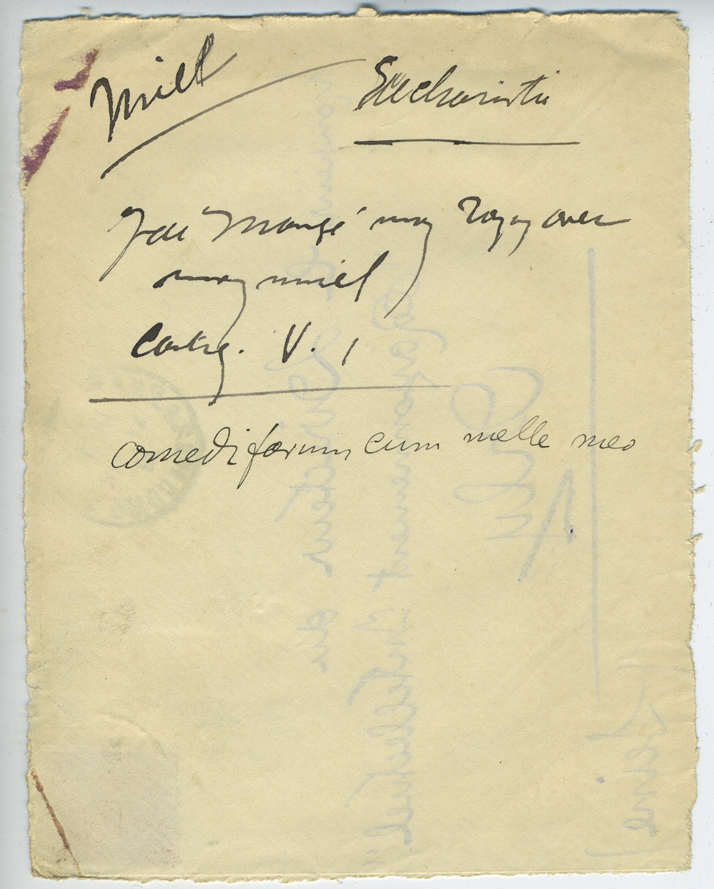 Miel Eucharistie
J'ai mangé mon rayon avec
mon miel
Cantiq. V. 1
comedi favum cum melle meo